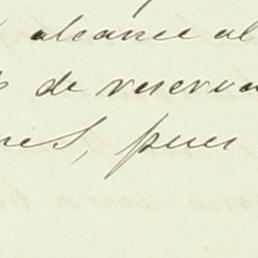 alcance al
de reserva
res, pues